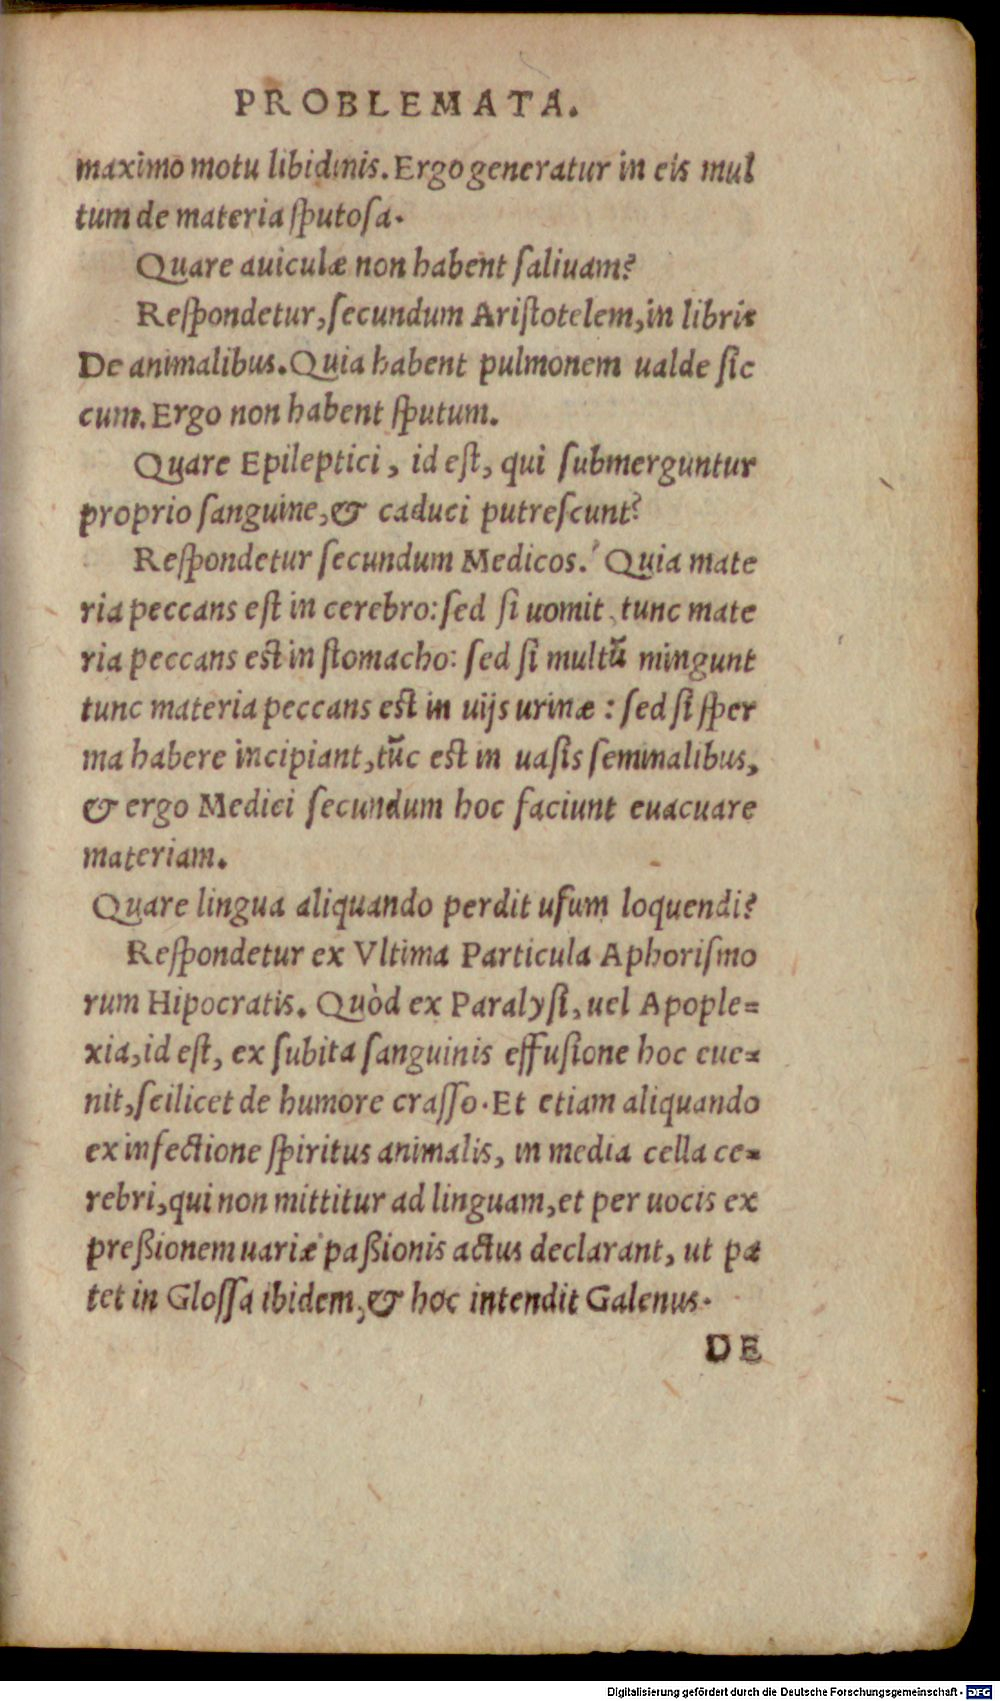 PROBLEMATA.
maximo motu libidinis. Ergo generatur in eis mul
tum de materia ſputoſa.
Quare auiculæ non habent ſaliuam?
Reſpondetur, ſecundum Ariſtotelem, in libris
De animalibus. Quia habent pulmonem ualde ſic
cum. Ergo non habent ſputum.
Quare Epileptici, id eſt, qui ſubmerguntur
proprio ſanguine, & caduci putreſcunt?
Reſpondetur ſecundum Medicos. Quia mate
ria peccans eſt in cerebro: ſed ſi uomit, tunc mate
ria peccans eſt in ſtomacho: ſed ſi multũ mingunt
tunc materia peccans eſt in uijs urinæ: ſed ſi ſper
ma habere incipiant, tũc eſt in uaſis ſeminalibus,
& ergo Medici ſecundum hoc faciunt euacuare
materiam.
Quare lingua aliquando perdit uſum loquendi?
Reſpondetur ex Vltima Particula Aphoriſmo
rum Hipocratis. Quòd ex Paralyſi, uel Apople=
xia, id eſt, ex ſubita ſanguinis effuſione hoc eue=
nit, ſcilicet de humore craſſo. Et etiam aliquando
ex infectione ſpiritus animalis, in media cella ce=
rebri, qui non mittitur ad linguam, et per uocis ex
preßionem uariæ paßionis actus declarant, ut pa
tet in Gloſſa ibidem, & hoc intendit Galenus.
DE
Digitalisierung gefördert durch die Deutsche Forschungsgemeinschaft - DFG